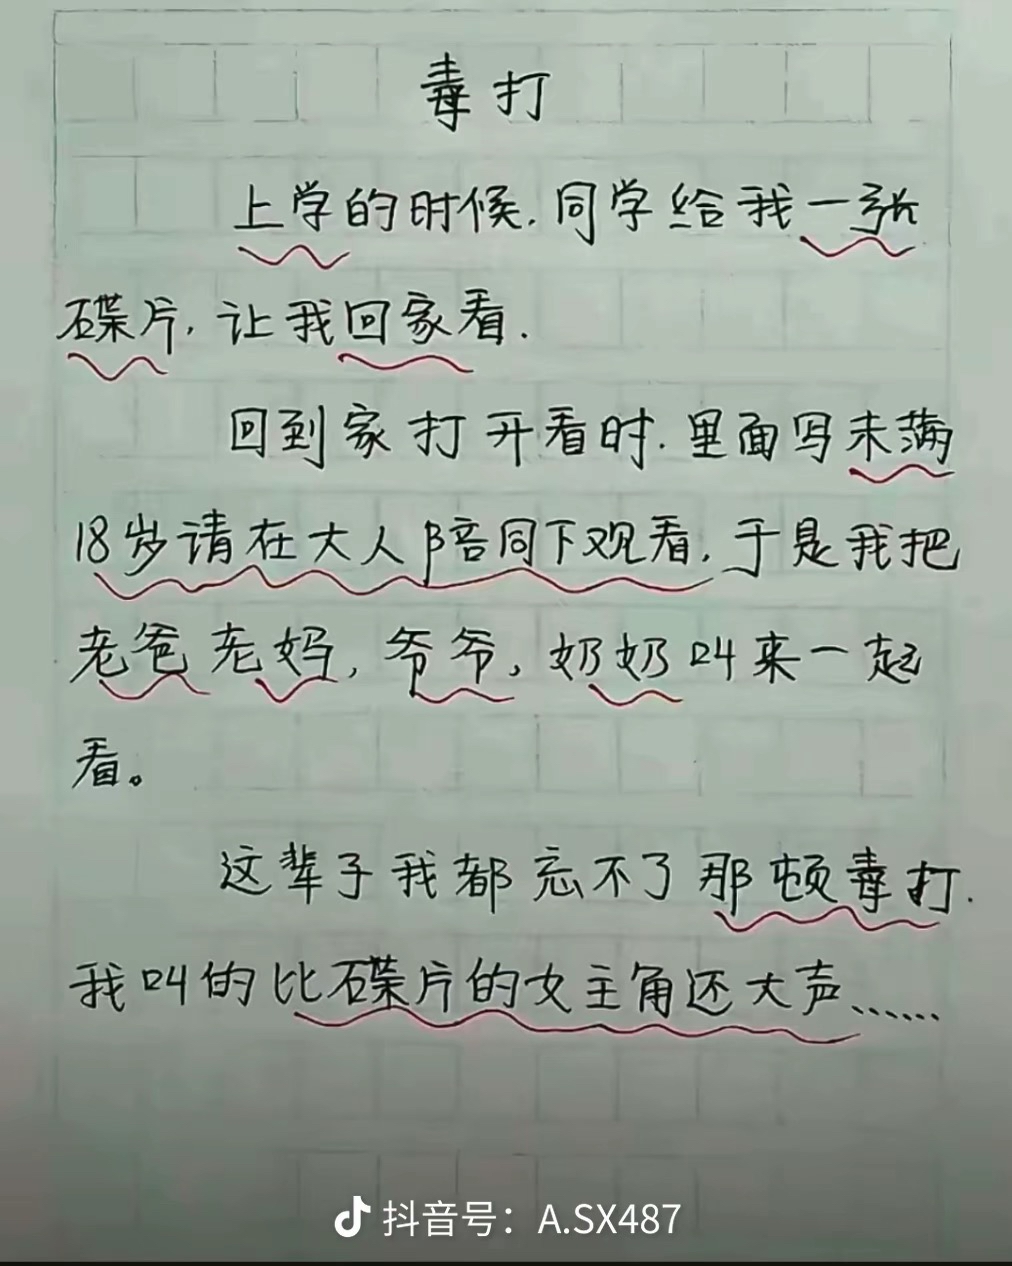 毒打
上学的时候.同学给我一张
碟片.让我回家看.
回到家打开看时.里面写未满
18岁请在大人陪同下观看.于是我把
老爸老妈,爷爷,奶奶叫来一起
看。
这辈子我都忘不了那顿毒打.
我叫的比碟片的女主角还大声……
抖音号：A.SX487